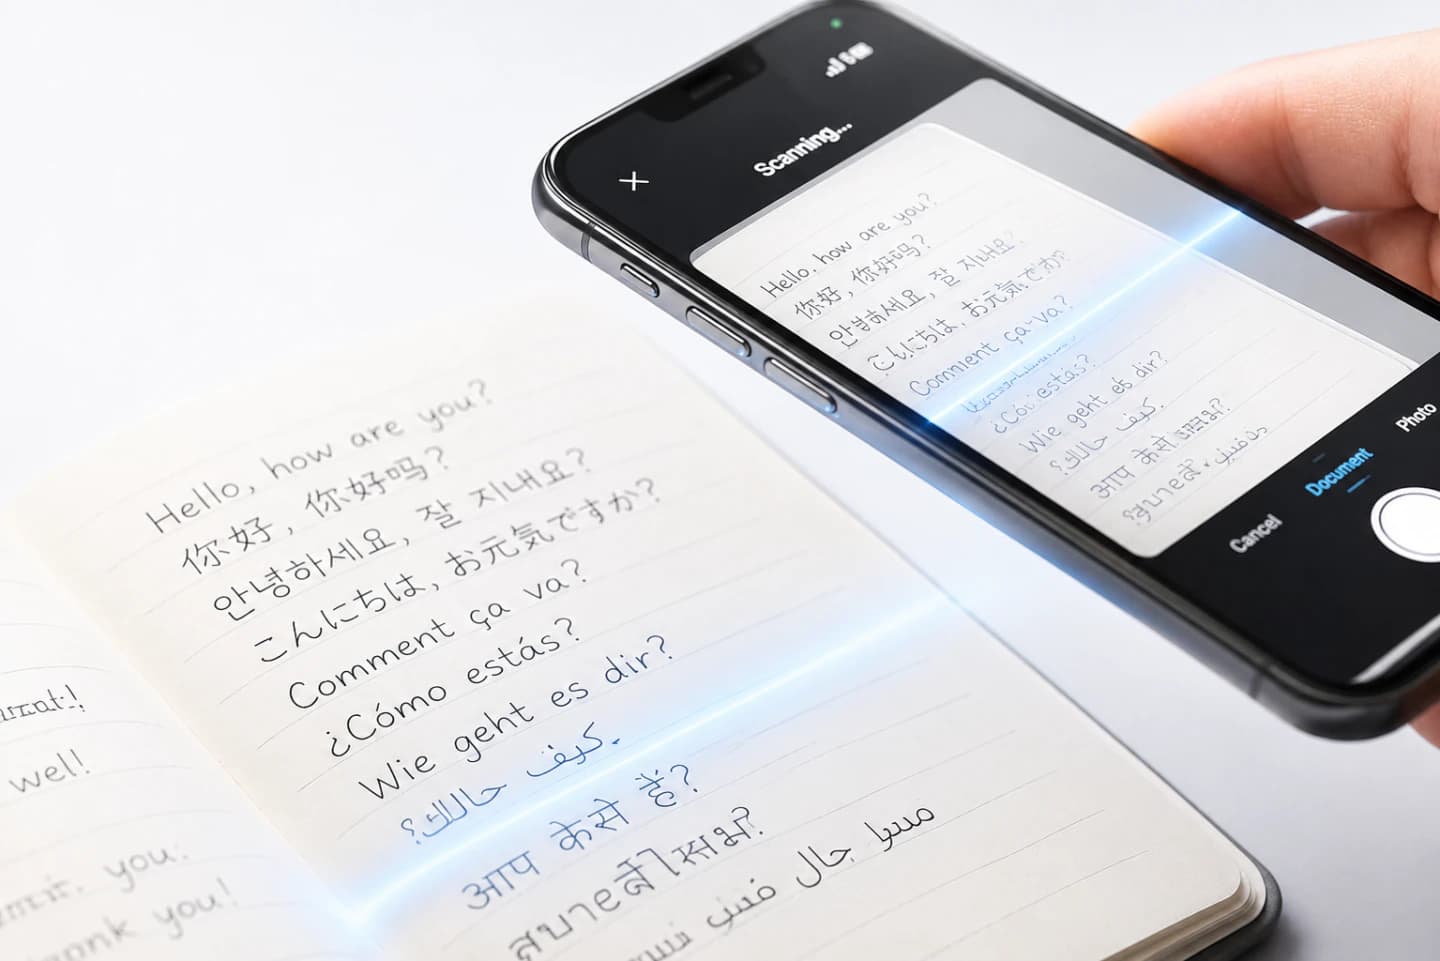 wel!
you.
you!
Hello, how are you?
你好，你好吗？
안녕하세요, 잘 지내요?
こんにちは、お元気ですか?
Comment ça va?
¿Cómo estás?
Wie geht es dir?
كيف حالك؟
आप कैसे हैं?
Scanning...
Hello, how are you?
你好，你好吗？
안녕하세요, 잘 지내요?
こんにちは、お元気ですか?
Comment ça va?
¿Cómo estás?
Wie geht es dir?
كيف حالك؟
आप कैसे
Cancel
Document
Photo